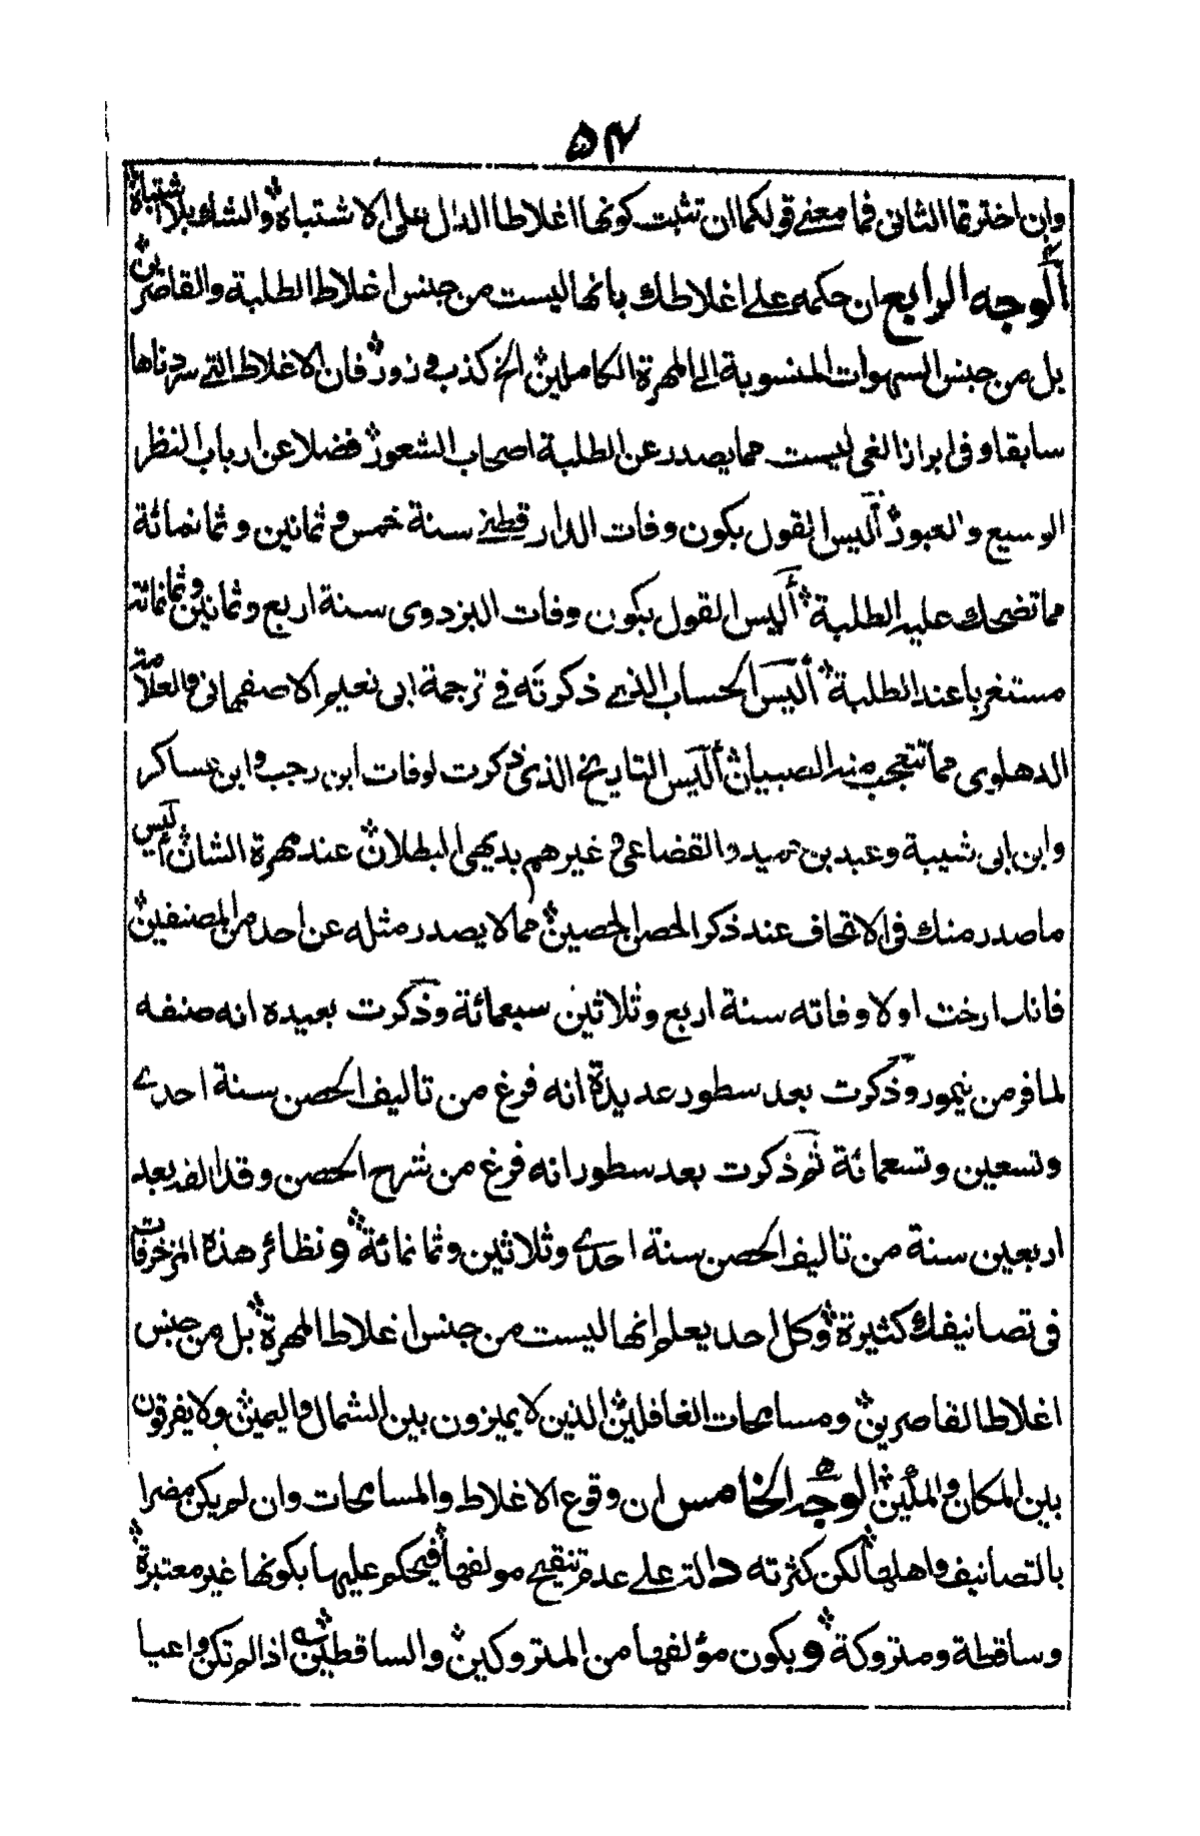 ۵۴
وان اخترتما الثانى فما معنے قولكما ان تثبت كونها اغلاطا الدال على الاشتباه والشك بلا اشتباه
الوجه الرابع ان حكمه علے اغلاطك بانها ليست من جنس اغلاط الطلبة والقاصرين
بل من جنس السهوات المنسوبة الى المهرة الكاملين الخ كذب وزور فان الاغلاط التے سردناها
سابقا وفى ابراز الغى ليست مما يصدر عن الطلبة اصحاب الشعور فضلا عن ارباب النظر
الوسيع والعبور أليس القول بكون وفات الدارقطنے سنة خمس وثمانين وثمانمائة
مما تضحك عليه الطلبة أليس القول بكون وفات البزدوى سنة اربع وثمانين وثمانمائة
مستغربا عند الطلبة أليس الحساب الذے ذكرته فے ترجمة ابى نعيم الاصفهانى والعلامة
الدهلوى مما تتعجب منه الصبيان أليس التاريخ الذى ذكرت لوفات ابن رجب وابن عساكر
وابن ابى شيبة وعبد بن حميد والقضاعى وغيرهم بديهى البطلان عند مهرة الشان أليس
ما صدر منك فى الاتحاف عند ذكر الحصن الحصين مما لا يصدر مثله عن احد من المصنفين
فانك ارخت اولا وفاته سنة اربع وثلاثين سبعمائة وذكرت بعيده انه صنفه
لما فر من تيمور وذكرت بعد سطور عديدة انه فرغ من تاليف الحصن سنة احدے
وتسعين وتسعمائة ثم ذكرت بعد سطور انه فرغ من شرح الحصن وقد الفه بعد
اربعين سنة من تاليف الحصن سنة احدے وثلاثين وثمانمائة ونظائر هذه المزخرفات
فى تصانيفك كثيرة وكل احد يعلم انها ليست من جنس اغلاط المهرة بل من جنس
اغلاط القاصرين ومسامحات الغافلين الذين لا يميزون بين الشمال واليمين ولا يفرقون
بين المكان والمكين الوجه الخامس ان وقوع الاغلاط والمسامحات وان لم يكن مضرا
بالتصانيف واهلها لكن كثرته دالة علے عدم تنقيح مولفها فيحكم عليها بكونها غير معتبرة
وساقطة ومتروكة وبكون مؤلفها من المتروكين والساقطين اذا لم تكن واعيا